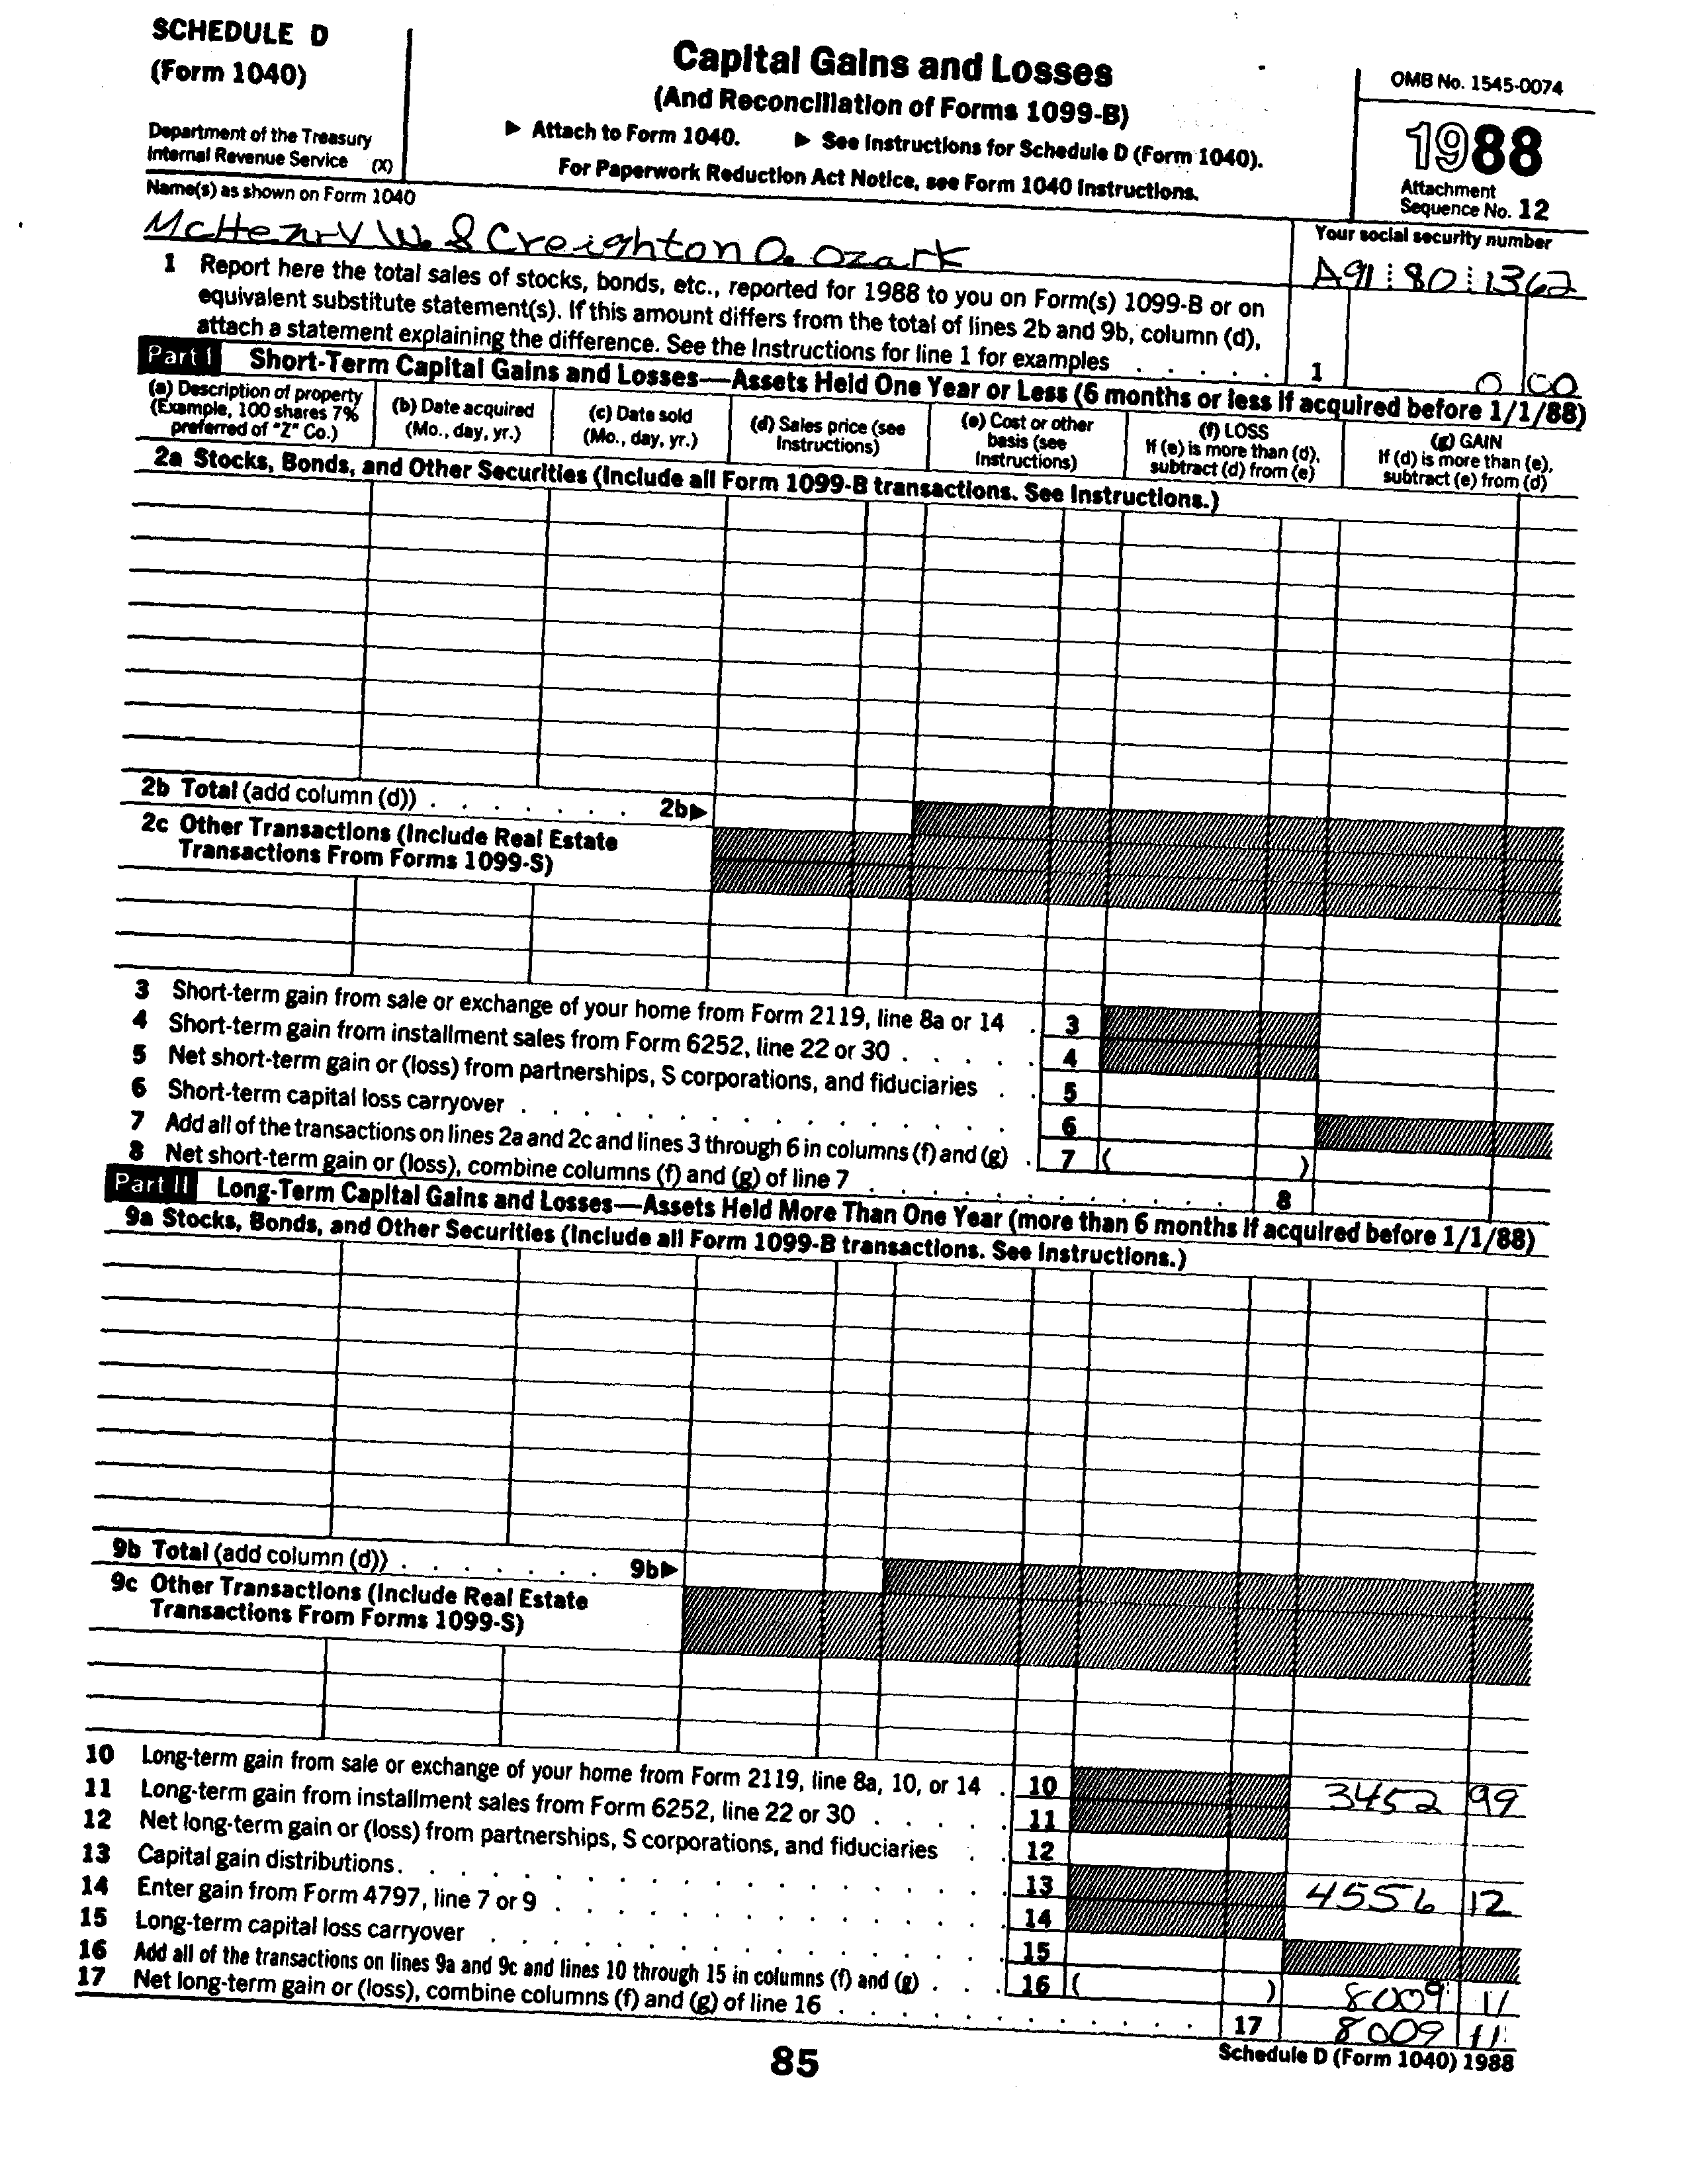 SCHEDULE D
(Form 1040)
Department of the Treasury
Internal Revenue Service (X)
Capital Gains and Losses
(And Reconciliation of Forms 1099-B)
▶ Attach to Form 1040. ▶ See Instructions for Schedule D (Form 1040).
For Paperwork Reduction Act Notice, see Form 1040 Instructions.
OMB No. 1545-0074
1988
Attachment
Sequence No. 12
Name(s) as shown on Form 1040
McHenry W. & Creighton O. Ozark
Your social security number
A91 80 1362
1 Report here the total sales of stocks, bonds, etc., reported for 1988 to you on Form(s) 1099-B or on
equivalent substitute statement(s). If this amount differs from the total of lines 2b and 9b, column (d),
attach a statement explaining the difference. See the Instructions for line 1 for examples . . . . . 1 0 00
Part I Short-Term Capital Gains and Losses—Assets Held One Year or Less (6 months or less if acquired before 1/1/88)
(a) Description of property
(Example, 100 shares 7%
preferred of "Z" Co.)
(b) Date acquired
(Mo., day, yr.)
(c) Date sold
(Mo., day, yr.)
(d) Sales price (see
Instructions)
(e) Cost or other
basis (see
Instructions)
(f) LOSS
If (e) is more than (d),
subtract (d) from (e)
(g) GAIN
If (d) is more than (e),
subtract (e) from (d)
2a Stocks, Bonds, and Other Securities (Include all Form 1099-B transactions. See Instructions.)
2b Total (add column (d)) . . . . . . . 2b▶
2c Other Transactions (Include Real Estate
Transactions From Forms 1099-S)
3 Short-term gain from sale or exchange of your home from Form 2119, line 8a or 14 . 3
4 Short-term gain from installment sales from Form 6252, line 22 or 30 . . . . . 4
5 Net short-term gain or (loss) from partnerships, S corporations, and fiduciaries . . 5
6 Short-term capital loss carryover . . . . . . . . . . . . . 6
7 Add all of the transactions on lines 2a and 2c and lines 3 through 6 in columns (f) and (g) . 7 ( )
8 Net short-term gain or (loss), combine columns (f) and (g) of line 7 . . . . . . . . . . . 8
Part II Long-Term Capital Gains and Losses—Assets Held More Than One Year (more than 6 months if acquired before 1/1/88)
9a Stocks, Bonds, and Other Securities (Include all Form 1099-B transactions. See Instructions.)
9b Total (add column (d)) . . . . . . . 9b▶
9c Other Transactions (Include Real Estate
Transactions From Forms 1099-S)
10 Long-term gain from sale or exchange of your home from Form 2119, line 8a, 10, or 14 . 10 3452 99
11 Long-term gain from installment sales from Form 6252, line 22 or 30 . . . . . 11
12 Net long-term gain or (loss) from partnerships, S corporations, and fiduciaries . . 12
13 Capital gain distributions . . . . . . . . . . . . . . . . 13 4556 12
14 Enter gain from Form 4797, line 7 or 9 . . . . . . . . . . . . 14
15 Long-term capital loss carryover . . . . . . . . . . . . . . 15
16 Add all of the transactions on lines 9a and 9c and lines 10 through 15 in columns (f) and (g) . . . 16 ( ) 8009 11
17 Net long-term gain or (loss), combine columns (f) and (g) of line 16 . . . . . . . . . . . 17 8009 11
85
Schedule D (Form 1040) 1988